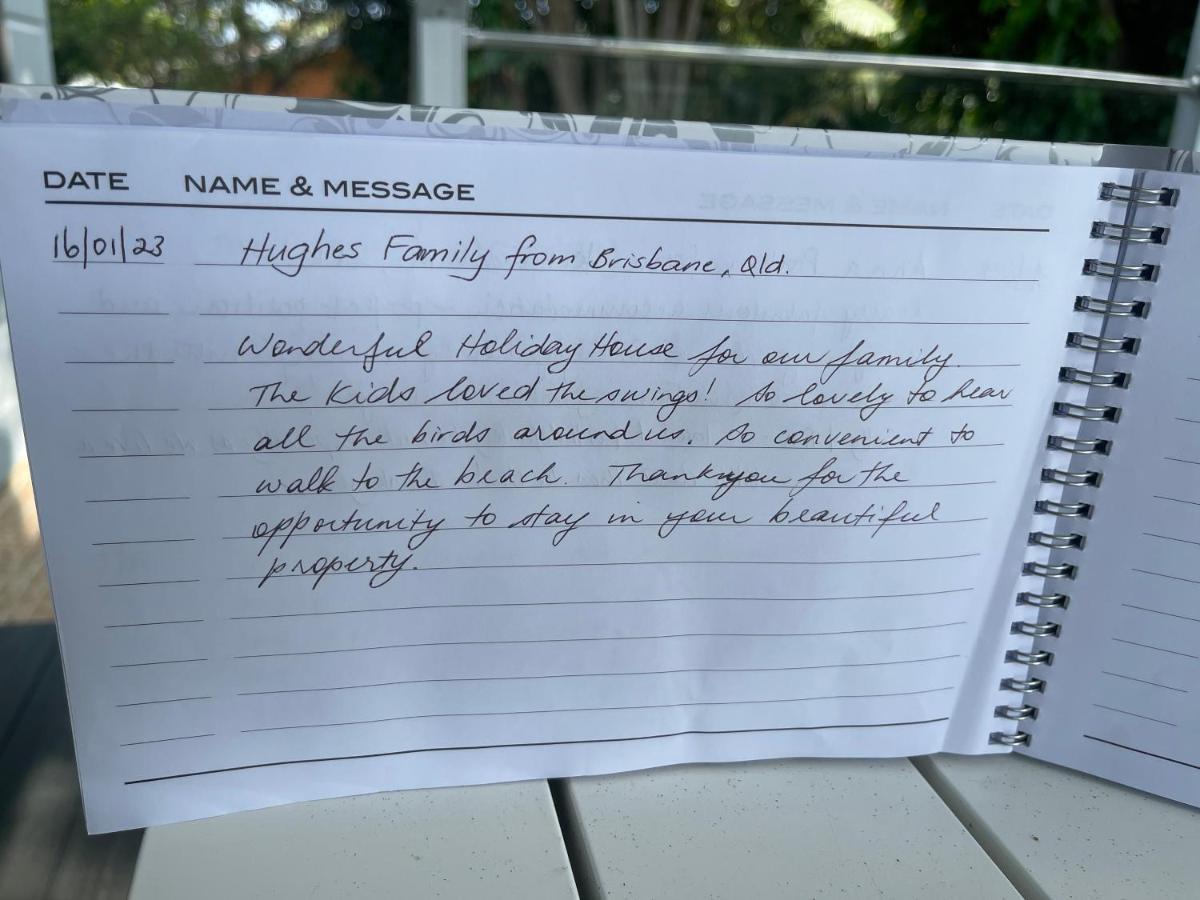 DATE NAME & MESSAGE
16/01/23 Hughes Family from Brisbane, Qld.
Wonderful Holiday House for our family.
The Kids loved the swings! So lovely to hear
all the birds around us. So convenient to
walk to the beach. Thankyou for the
opportunity to stay in your beautiful
property.